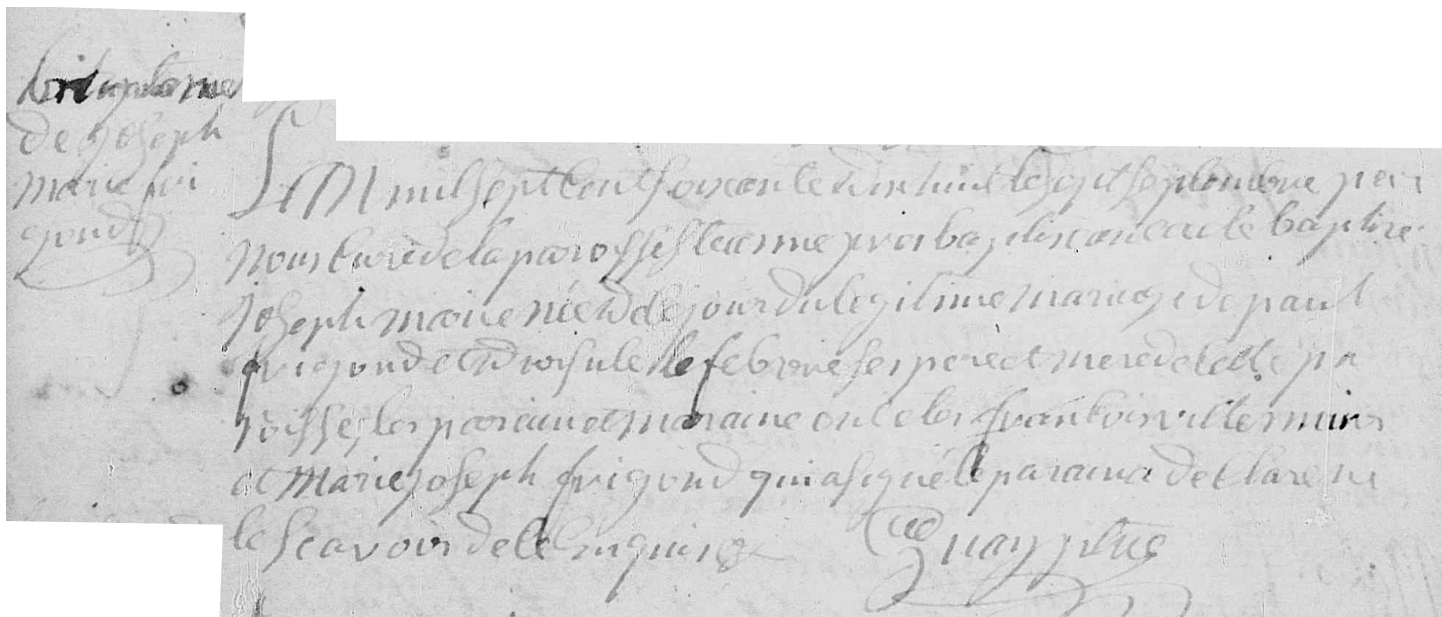 de joseph
marie fri
gond
LM mil sept cent soixante dix huit le sept septembre par
nous curé de la paroisse ste anne
joseph marie né du legitime mariage de paul
frigond et d ursule lefebvre ses pere et mere de cette pa
roisse les parain et maraine ont ete les francois
et marie joseph frigond qui a signé le parain a declaré ne
le scavoir de ce enquis